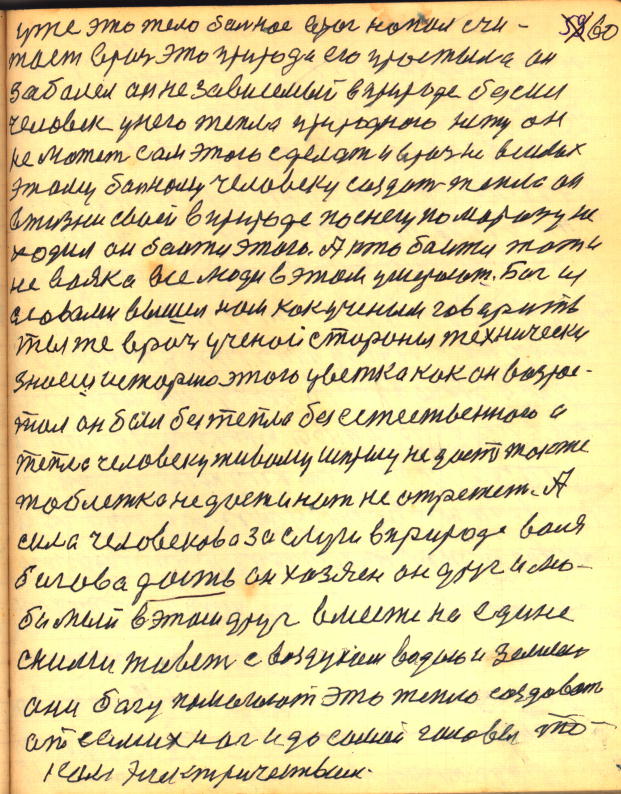 59 60
уже это тело балное врог напал счи-
тает врач это природа его простыла он
заболел он не зависемый в природе безсил
человек у него тепла природного нету он
не может сам этого сделат и врач не всилах
этому балному человеку создат тепла он
в жизни своей в природе по снегу по морозу не
ходил он баится этого. А кто баится тот и
не вояка все люди в этом умерают. Бог и
словами вышел нам как ученым говарить
ты же врач ученой стороны технически
знаеш историю этого цветка как он возрос-
тал он был без тепла без естественного а
тепла человеку живому никому не даст также
таблетка не даст и нож не отрежет. А
сила человекова заслуги в природе воля
богова дость он хазяен он друг и лю-
бимый в этом друг вместе на едине
сними живет с воздухом водою и землею
они богу помогают это тепло создовать
от самих ног и до самой головы то-
ком электричеством.